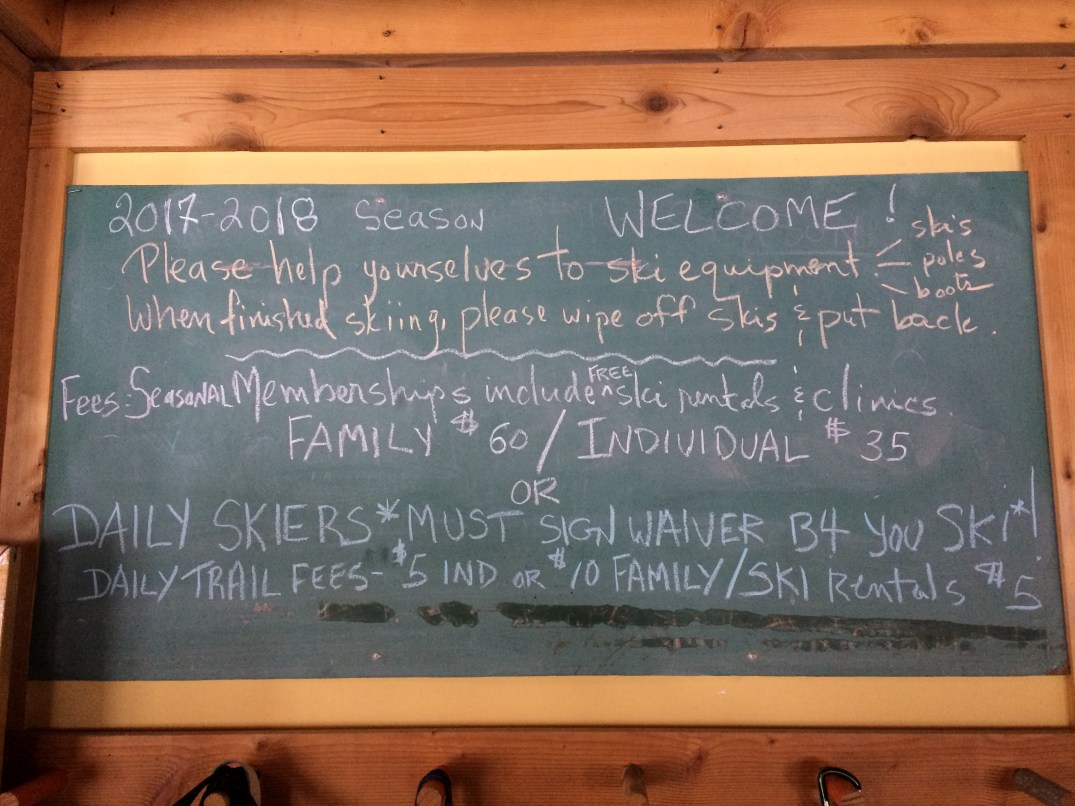 2017-2018 Season WELCOME!
Please help yourselves to ski equipment - skis
poles
& boots
When finished skiing, please wipe off skis & put back.
Fees: Seasonal Memberships include ^FREE ski rentals & clinics.
FAMILY $60 / INDIVIDUAL $35
OR
DAILY SKIERS *MUST SIGN WAIVER B4 YOU SKI*!
DAILY TRAIL FEES- $5 IND OR $10 FAMILY/SKI Rentals $5